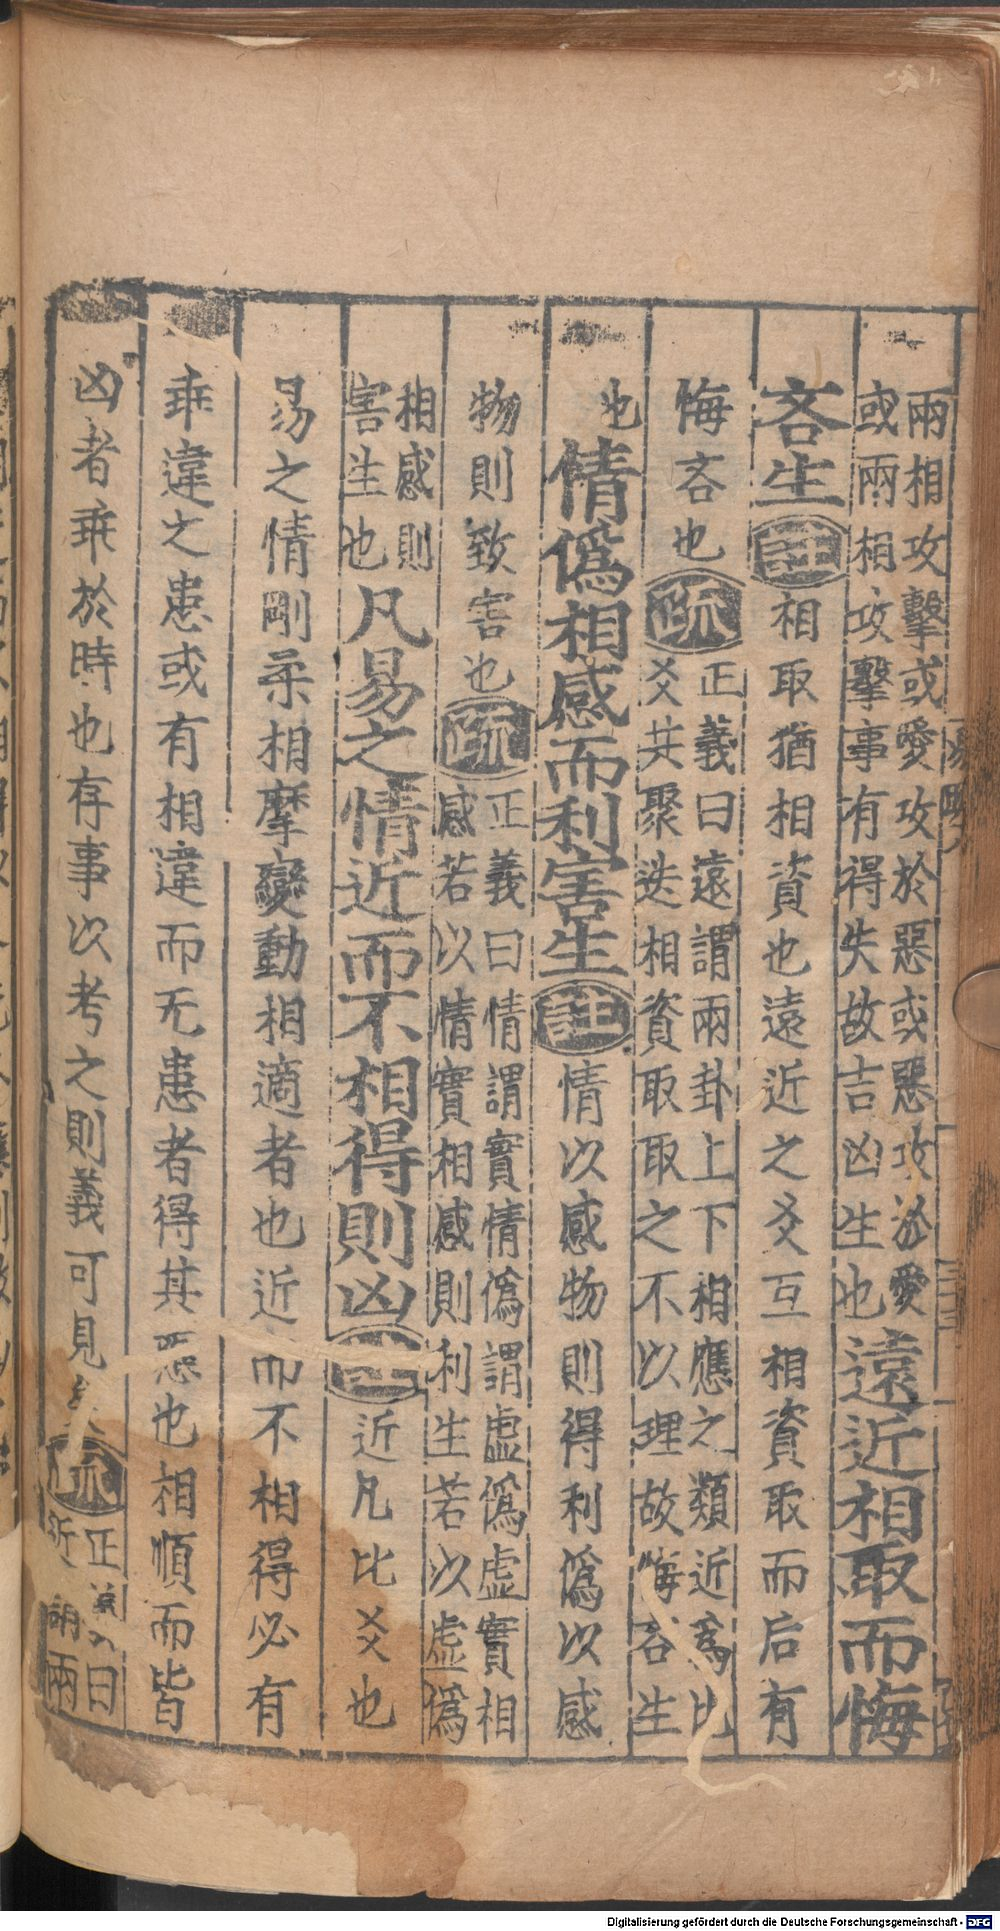 兩相攻擊或愛攻於惡或惡攻於愛
或兩相攻擊事有得失故吉凶生也
遠近相取而悔
吝生註相取猶相資也遠近之爻互相資取而后有
悔吝也疏
正義曰遠謂兩卦上下相應之類近爲比
爻共聚迭相資取取之不以理故悔吝生
也情僞相感而利害生註情以感物則得利僞以感
物則致害也疏
正義曰情謂實情僞謂虛僞虛實相
感若以情實相感則利生若以虛僞
相感則
害生也
凡易之情近而不相得則凶註近凡比爻也
易之情剛柔相摩變動相適者也近而不相得必有
乖違之患或有相違而无患者得其應也相順而皆
凶者乖於時也存事以考之則義可見矣疏
正義曰
近謂兩
Digitalisierung gefördert durch die Deutsche Forschungsgemeinschaft - DFG